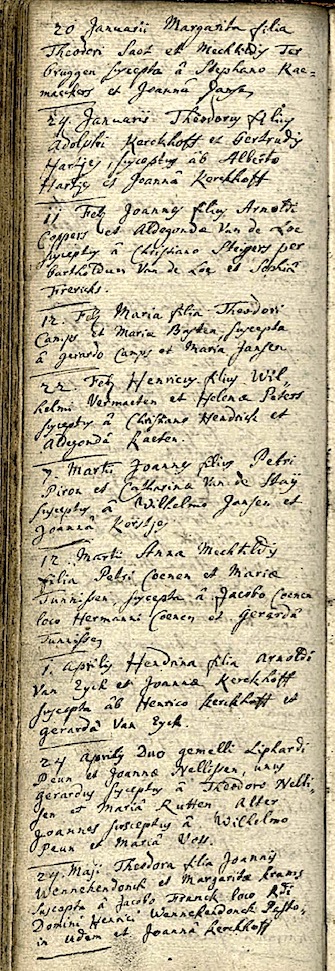 20 Januarii Margarita filia
Theodori Saot et Mechtildis Ter
bruggen suscepta à Stephano Rae-
maeckers et Joanna Jansen
29 Januarii Theodorus filius
Adolphi Kerckhoff et Gertrudis
Hartjes, susceptus ab Alberto
Hartjes et Joannâ Kerckhoff
11 Feb Joannes filius Arnoldi
Coppers et Aldegondæ Van de Loe
susceptus â Christiano Steigers per
Bartholdum Van de Loe et Sophiâ
Frericks.
12. Feb Maria filia Theodori
Camps et Mariæ suscepta
â Gerardo Camps et Maria Jansen
22. Feb Henricus filius Wil-
helmi Vermaeten et Helenæ Peters
susceptus â Christiano Hendrick et
Aldegondâ Raeten.
7 Martii Joannes filius Petri
Piron et Catharina Van de Staÿ
susceptus â Wilhelmo Jansen et
Joannâ Korstjes
12 Martii Anna Mechtildis
filia Petri Coenen et Mariæ
Tunnissen, suscepta â Jacobo Coenen
loco Hermanni Coenen et Gerardâ
Tunnissen
1 Aprilis Hendrina filia Arnoldi
Van Eyck et Joannæ Kerckhoff
suscepta âb Henrico Kerckhoff et
Gerarda Van Eyck.
24 Aprilis Duo gemelli Liphardi
Peun et Joannæ Nellissen, unus
Gerardus susceptus â Theodoro Nelli-
sen et Mariâ Rutten Alter
Joannes susceptus â Wilhelmo
Peun et Mariâ Voss.
29. Maji Theodora filia Joannis
Wennekendonck et Margaritæ
suscepta â Jacobo Franck loco Rdi
Domini Henrici Wennekendonck Pasto-
in Udem et Joanna Kerckhoff